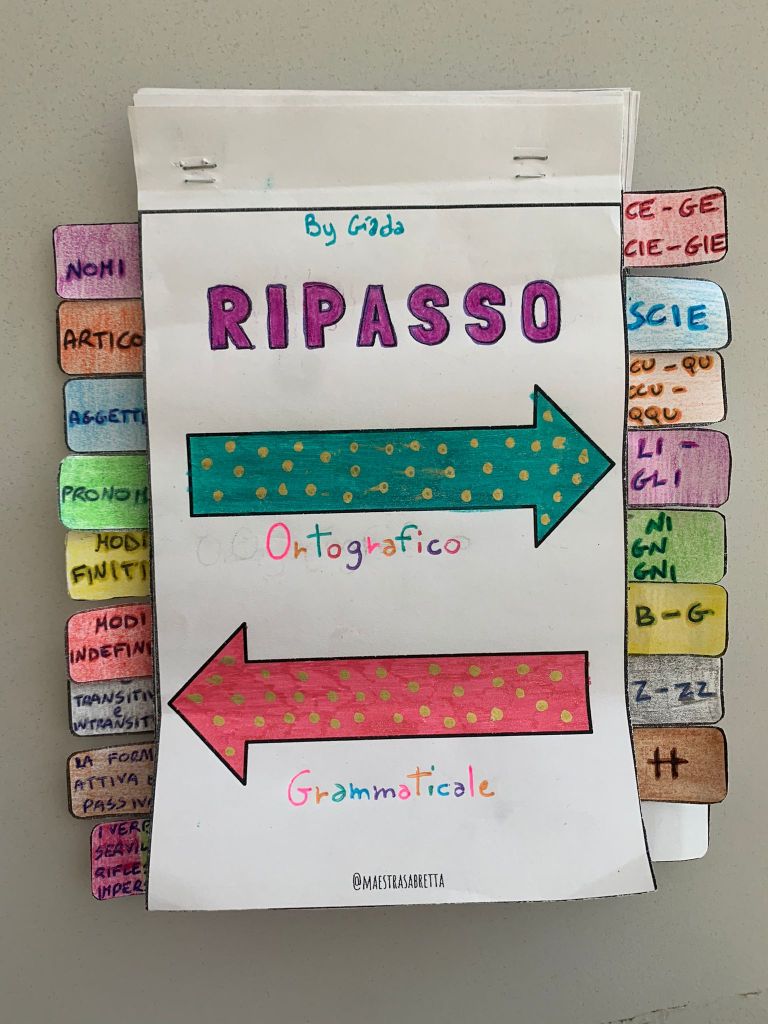 By Giada
RIPASSO
Ortografico
Grammaticale
@MAESTRASABRETTA
NOMI
ARTICO
AGGETTI
PRONOM
MODI
FINITI
MODI
INDEFINI
TRANSITIV
e
INTRANSITI
LA FORM
ATTIVA E
PASSIVA
I VERB
SERVIL
RIFLES
IMPERS
CE - GE
CIE - GIE
SCIE
CU - QU
CCU -
QQU
LI -
GLI
NI
GN
GNI
B - G
Z - ZZ
H